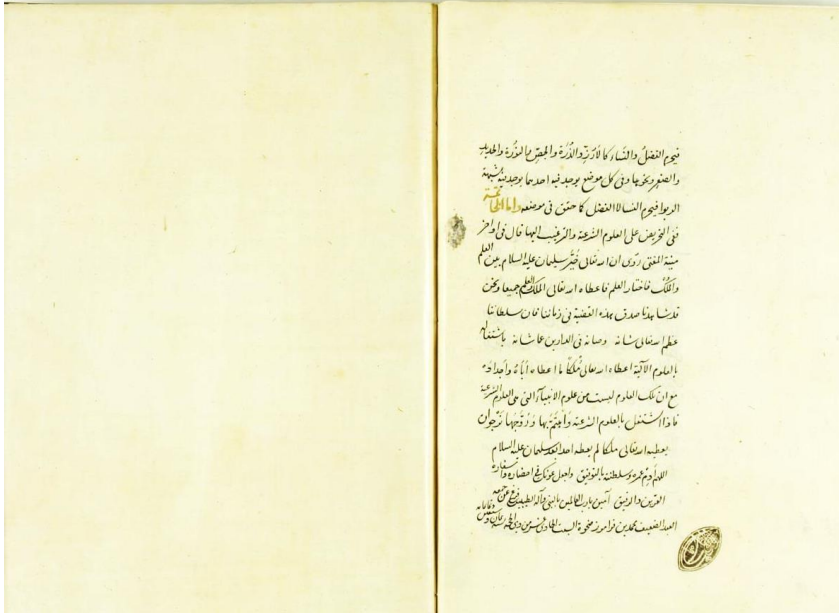 فيحرم الفضل والنساء كالأرز والذرة والجص والنورة والحديد
والصفر ونحوها وفى كل موضع يوجد فيه احدهما يوجد فيه شبهة
الربوا فيحرم النسا لا الفضل كما حقق فى موضعه واما الخاتمة
ففى التحريض على العلوم الشرعية والترغيب اليها قال فى اواخر
منية المفتى روى ان الله تعالى خيّر سليمان عليه السلام بين العلم
والملك فاختار العلم فاعطاه الله تعالى الملك والعلم جميعا ونحن
قد شاهدنا صدق هذه القضية فى زماننا فان سلطاننا
عظم الله تعالى شانه وصانه فى الدارين عما شانه باشتغاله
بالعلوم الآلية اعطاه الله تعالى ملكاً ما اعطاه آباءه وأجداده
مع ان تلك العلوم ليست من علوم الانبياء التى هى العلوم الشرعية
فاذا اشتغل بالعلوم الشرعية واهتم بها وروّجها نرجوان
يعطيه الله تعالى ملكا لم يعطه احدا بعد سليمان عليه السلام
اللهم أدم عمره وسلطنته بالتوفيق واجعل عونك فى احضاره وأسفاره
القرين والرفيق آمين يا رب العالمين بالنبى وآله الطيبين فرغ عن جمعه
العبد الضعيف محمد بن فرامرز ضحوة السبت الحادى وعشرين من ذى الحجة